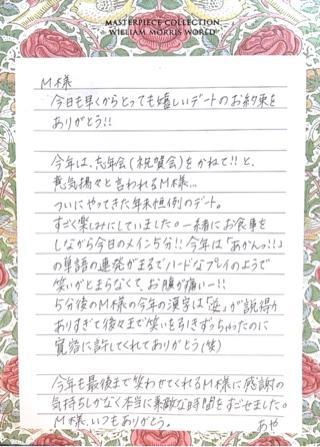 MASTERPIECE COLLECTION
WILLIAM MORRIS WORLD
M様
今日も早くからとっても嬉しいデートのお約束を
ありがとう!!
今年は、忘年会(祝賀会)をかねて!!と、
意気揚々と言われるM様…
ついにやってきた年末恒例のデート。
すごく楽しみにしていました。一緒にお食事を
しながら今日のメイン5分!!今年は「あかんっ!!」
の単語の連発がまるでハードなプレイのようで
笑いがとまらなくて、お腹が痛いー!!
5分後のM様の今年の漢字は「」が説得力
ありすぎて後々まで笑いを引きずっちゃったのに
寛容に許してくれてありがとう(笑)
今年も最後まで笑わせてくれるM様に感謝の
気持ちしかなく本当に素敵な時間をすごせました。
M様、いつもありがとう。
あや